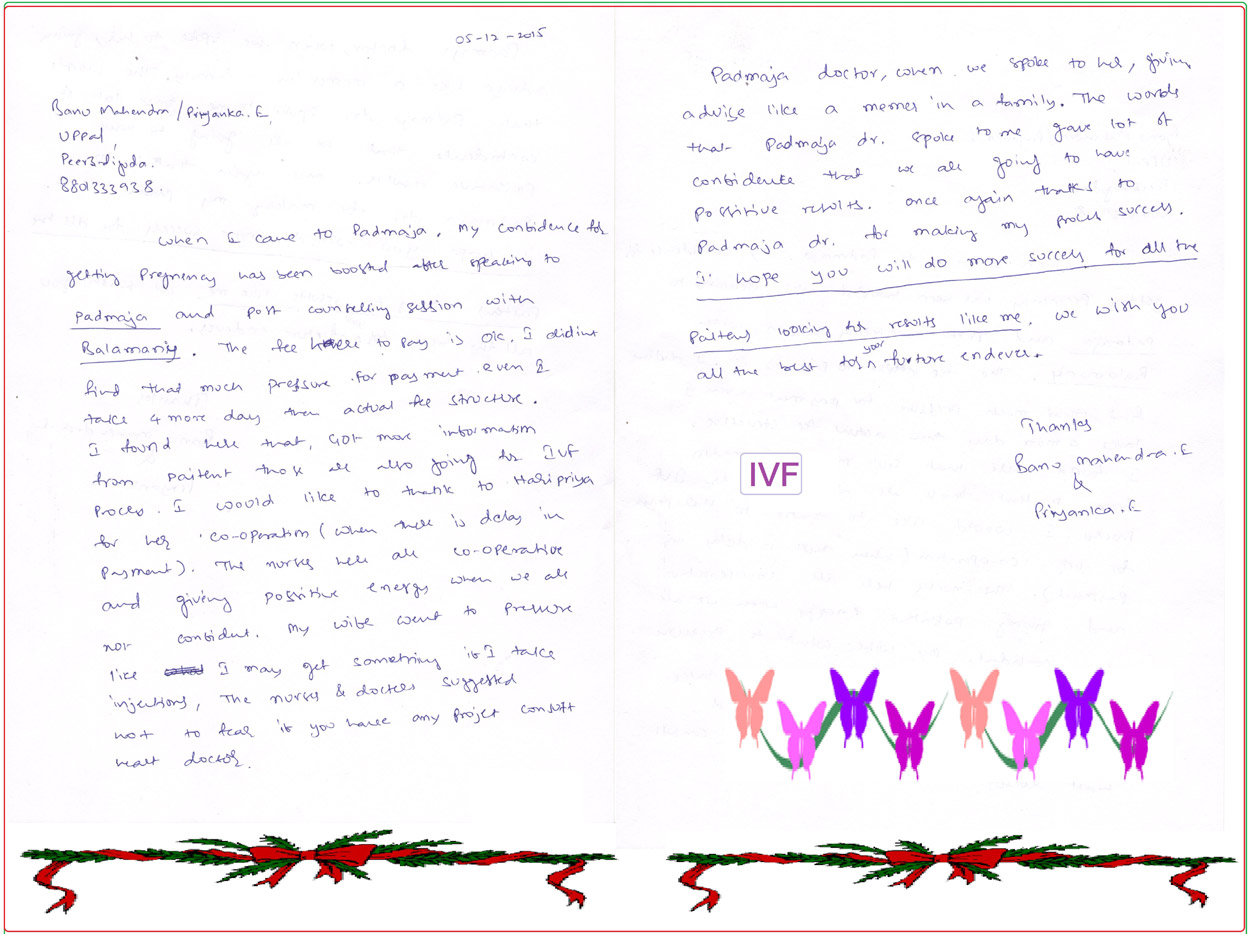 05-12-2015
Banu Mahendra/Priyanka.E,
Uppal,
8801333938.
When I came to Padmaja, My confidence for
getting Pregnency has been boosted after speaking to
Padmaja and post counselling session with
. The fee to pay is ok. I didint
find that much pressure for payment even I
take 4 more day then actual fee structure.
I found here that, GOt more information
from Paitent those are also going for IVF
Proces. I woould like to thank to Haripriya
for her co-operation (when there is delay in
Payment). The nurses here are co-operative
and giving possitive energy when we are
not confident. My wife went to pressure
like I may get something if I take
injections, The nurses & doctors suggested
not to fear if you have any consult
doctor.
Padmaja doctor, when we spoke to her, giving
advise like a memer in a family. The words
that Padmaja dr. spoke to me gave lot of
confidence that we are going to have
possitive results. once again thanks to
Padmaja dr. for making my proces success.
I hope you will do more success for all the
Paitens looking for results like me, we wish you
all the best for your furture endever.
Thanks
Banu mahendra.E
&
Priyanka.E
IVF